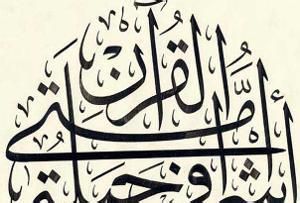 أشراف أُمَّتى حملة القُرآن